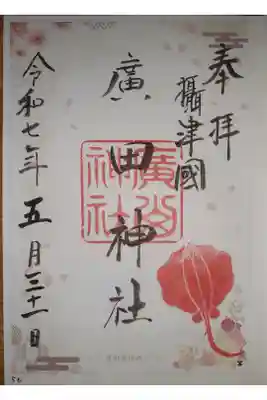 奉拝
攝津國
廣田神社
廣田神社
令和七年五月三十一日